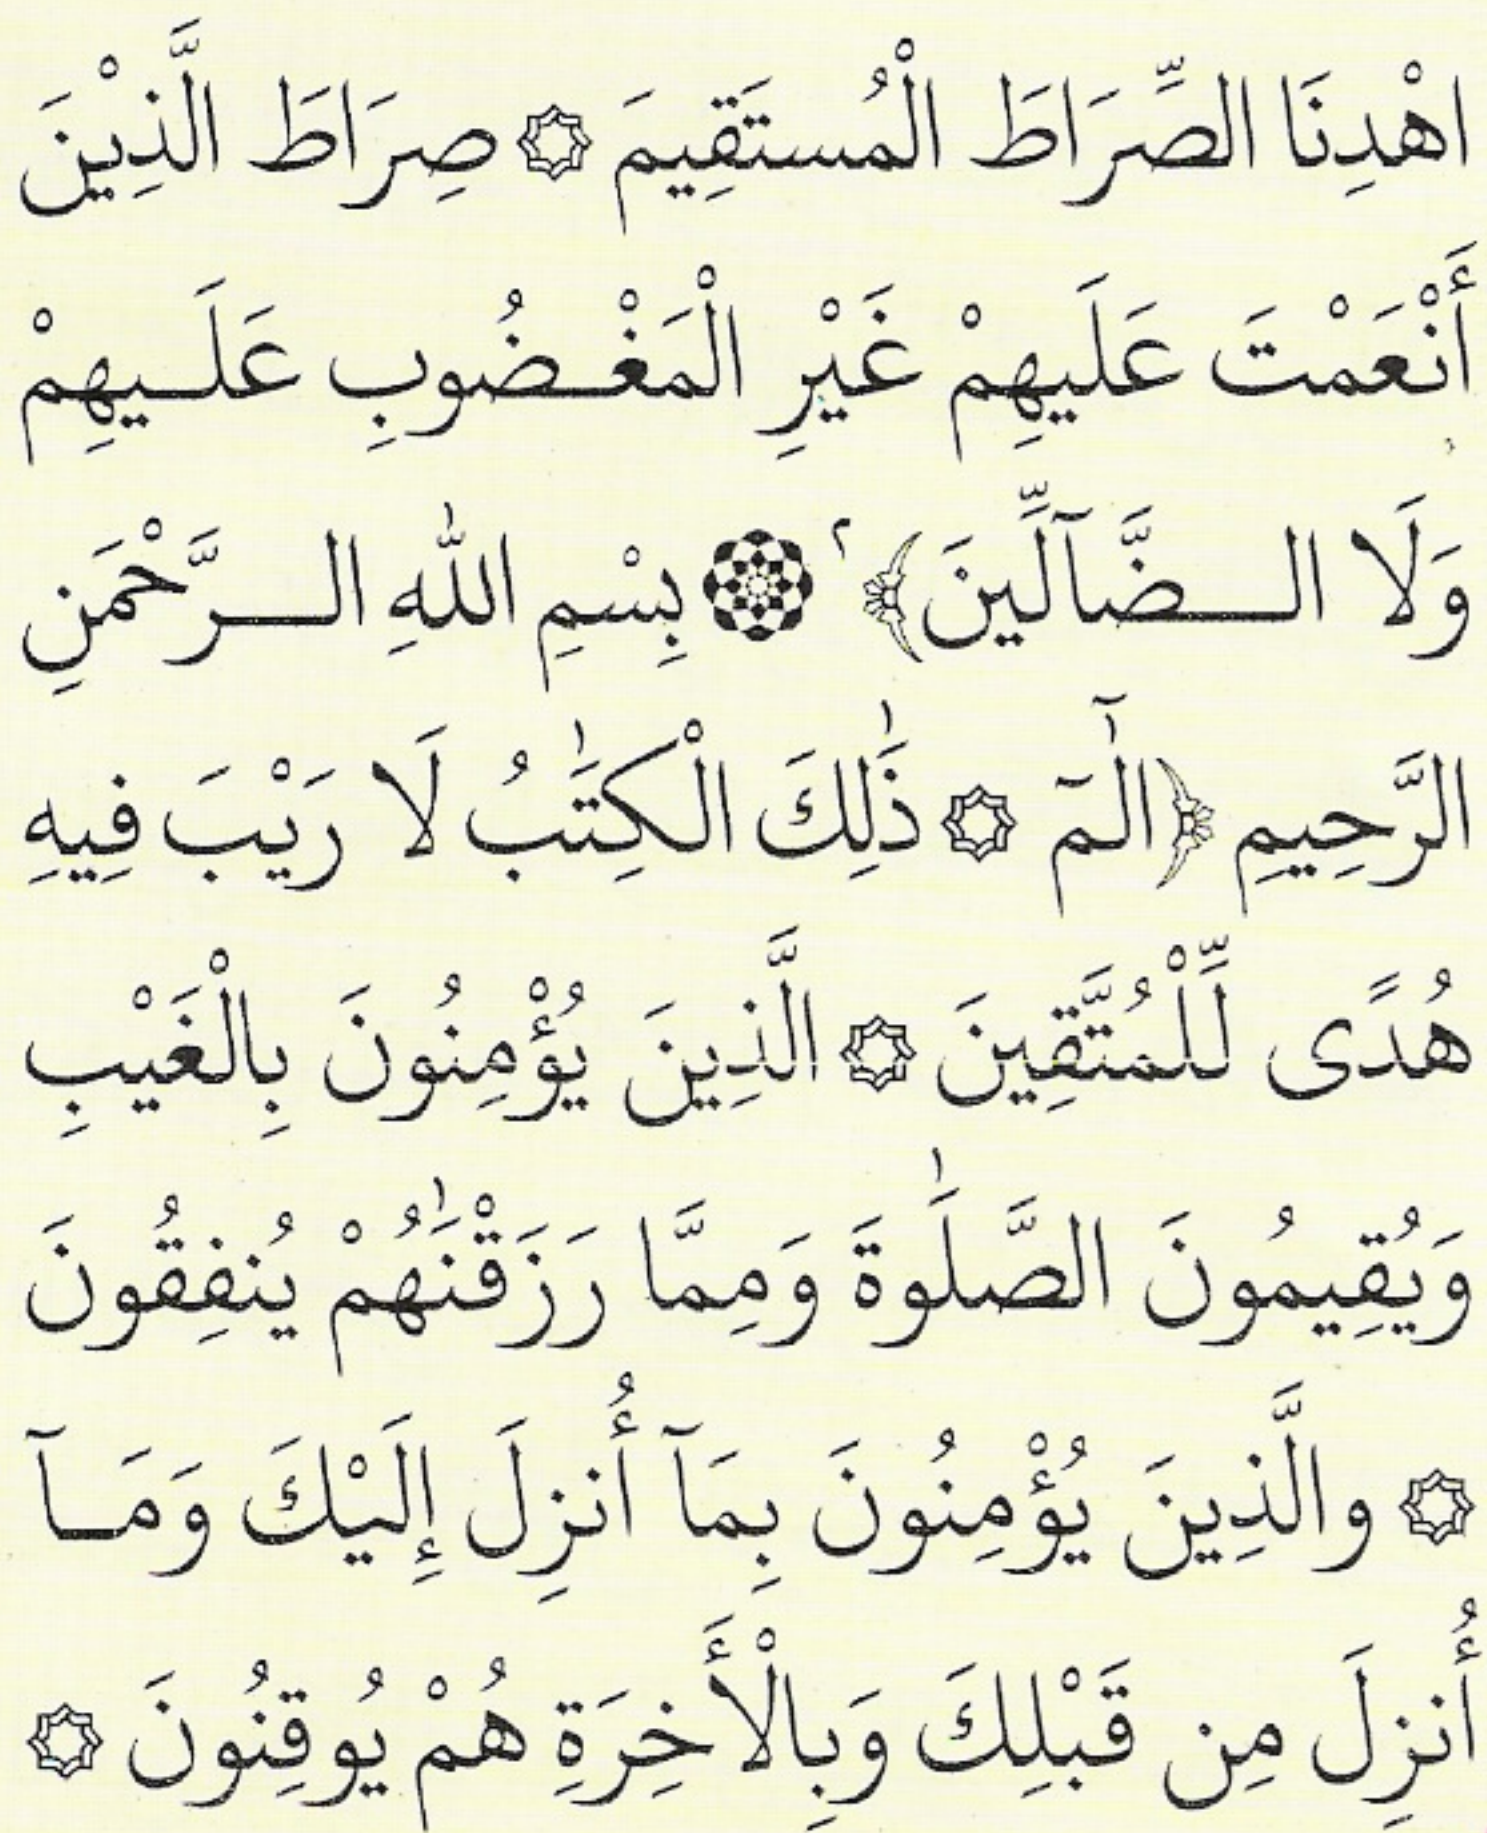 اهْدِنَا الصِّرَاطَ الْمُستَقِيمَ ۞ صِرَاطَ الَّذِيْنَ
أَنْعَمْتَ عَلَيهِمْ غَيْرِ الْمَغْـضُوبِ عَلَـيهِمْ
وَلَا الـضَّآلِّينَ﴾ ٢ ۞ بِسْمِ اللهِ الـرَّحْمَنِ
الرَّحِيمِ ﴿الٓمٓ ۞ ذَٰلِكَ الْكِتَٰبُ لَا رَيْبَ فِيهِ
هُدًى لِّلْمُتَّقِينَ ۞ الَّذِينَ يُؤْمِنُونَ بِالْغَيْبِ
وَيُقِيمُونَ الصَّلَٰوةَ وَمِمَّا رَزَقْنَٰهُمْ يُنفِقُونَ
۞ والَّذِينَ يُؤْمِنُونَ بِمَآ أُنزِلَ إِلَيْكَ وَمَـآ
أُنزِلَ مِن قَبْلِكَ وَبِالْأَخِرَةِ هُمْ يُوقِنُونَ ۞